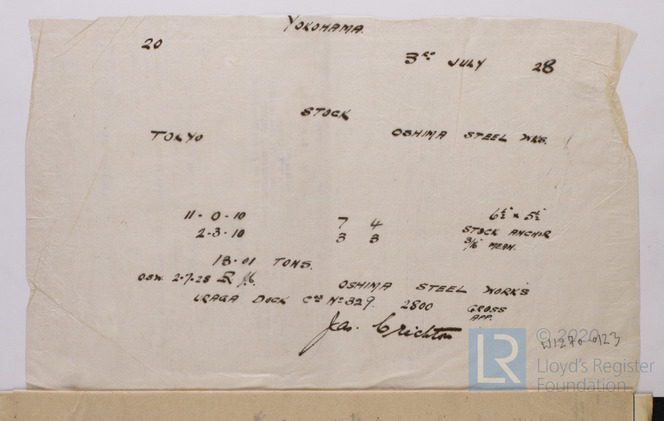 YOKOHAMA.
20
3RD JULY 28
STOCK
TOKYO OSHIMA STEEL WKS.
11-0-10 7 4 6½ x 5½
2-3-10 3 3 STOCK ANCHOR
3/16 MEAN.
18.01 TONS.
OSW. 2-7-28
OSHIMA STEEL WORKS
URAGA DOCK Cos No 329. 2800 GROSS
APP.
Jas. Crichton
© 2020
Lloyd's Register
Foundation
LR